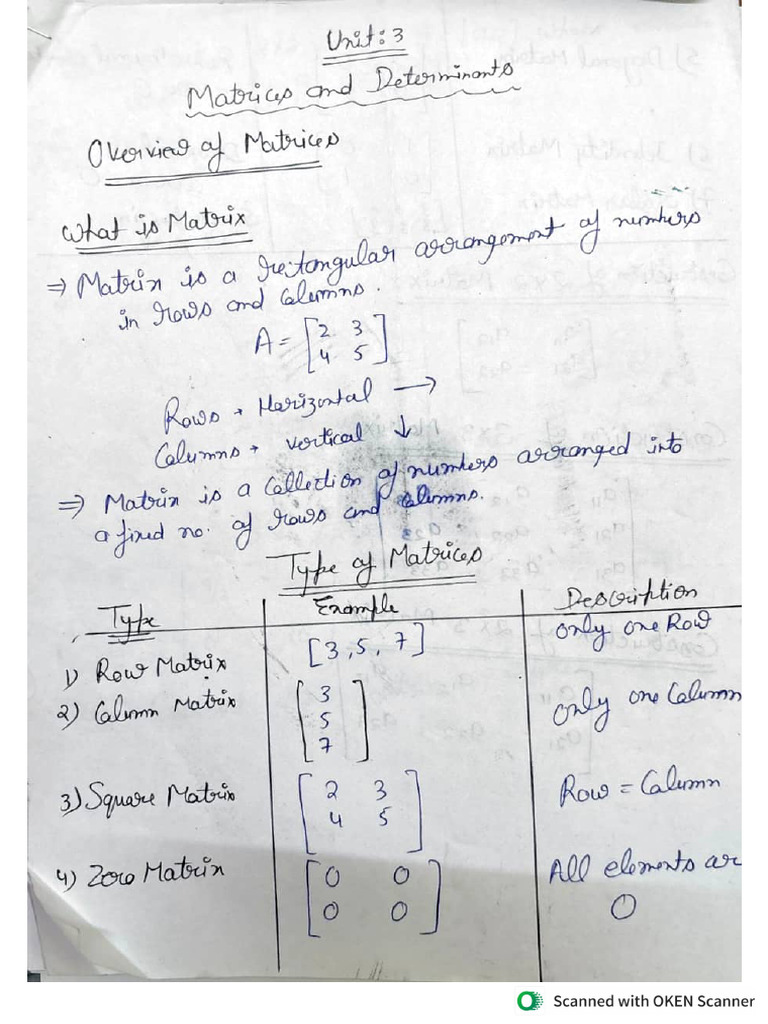 Unit: 3
Matrices and Determinants
Overview of Matrices
What is Matrix
⇒ Matrix is a rectangular arrangement of numbers
in rows and columns.
A = [2 3
4 5]
Rows → Horizontal →
Columns → vertical ↓
⇒ Matrix is a collection of numbers arranged into
a fixed no. of rows and columns.
Type of Matrices
Type Example Description
1) Row Matrix [3, 5, 7] only one Row
2) Column Matrix [3 only one Column
5
7]
3) Square Matrix [2 3 Row = Column
4 5]
4) Zero Matrix [0 0 All elements ar
0 0] 0
Scanned with OKEN Scanner